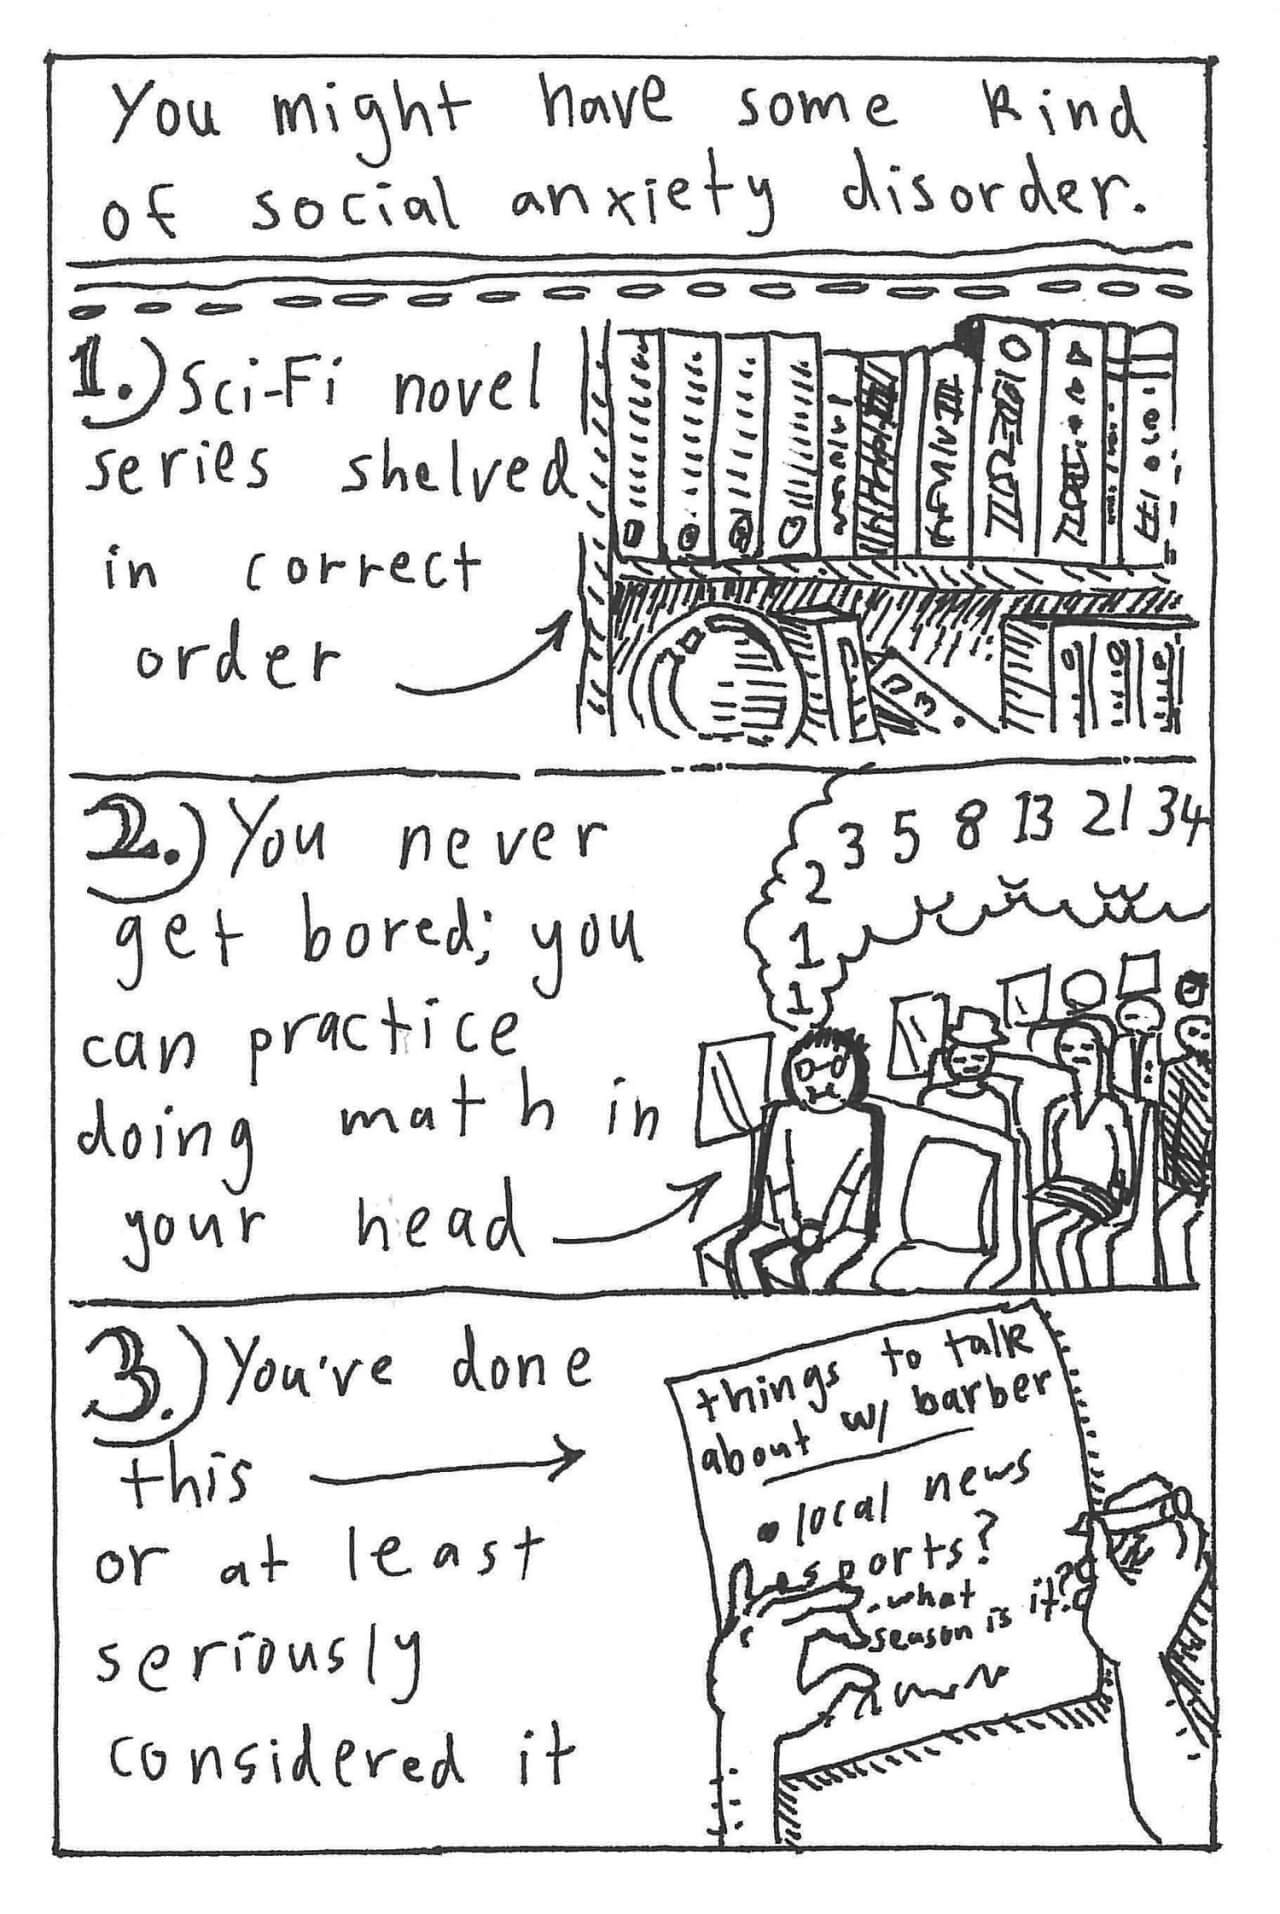 You might have some kind
of social anxiety disorder.
1.) Sci-Fi novel
series shelved
in correct
order
2.) You never
get bored; you
can practice
doing math in
your head
3 5 8 13 21 34
2
1
1
3.) You've done
this
or at least
seriously
considered it
things to talk
about w/ barber
• local news
• sports?
- what
season is it?